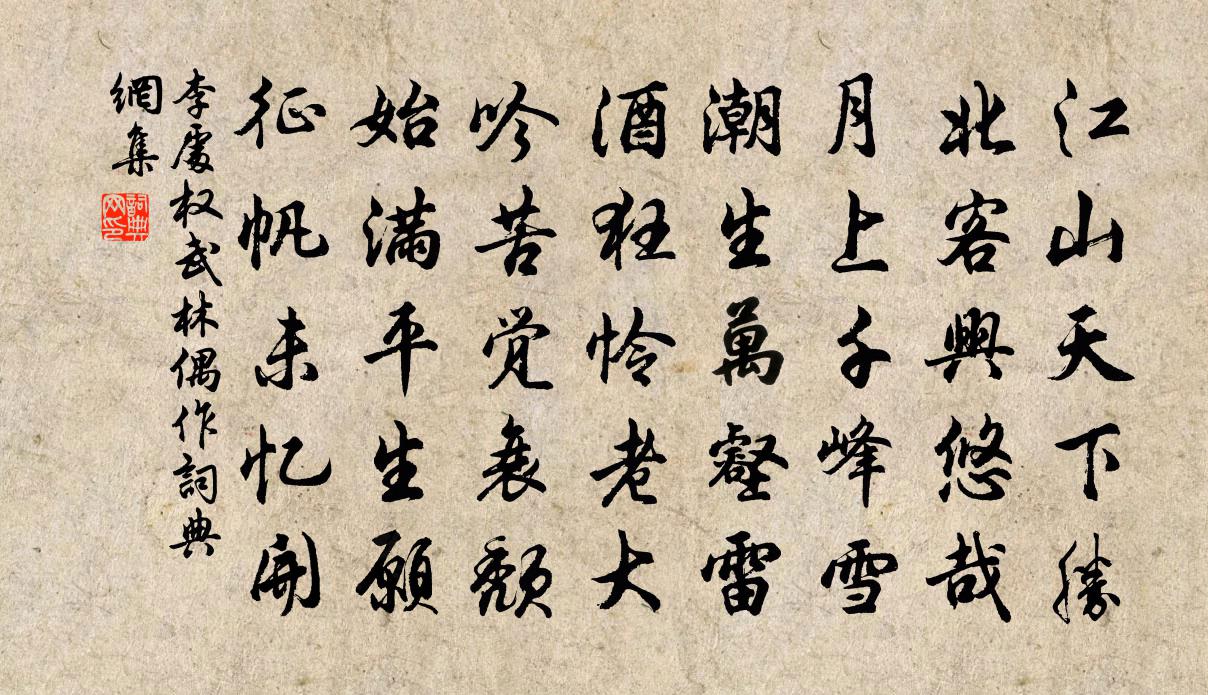 江山天下勝
北客興悠哉
月上千峰雪
潮生萬壑雷
酒狂怜老大
吟苦覚衰颓
始满平生願
征帆未忆開
李處权武林偶作詞典
網集
詞典
网印